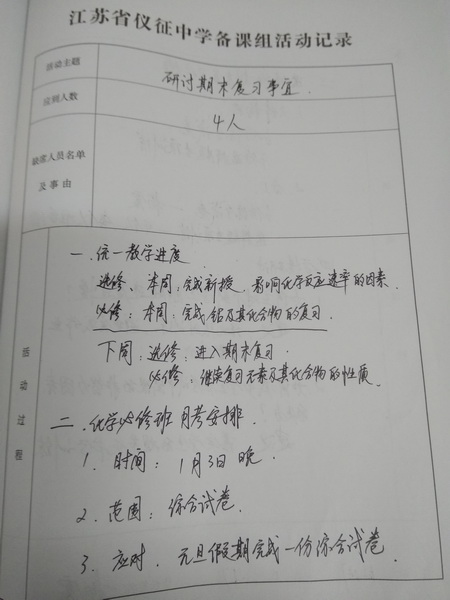 江苏省仪征中学备课组活动记录
活动主题
研讨期末复习事宜.
应到人数
4人
缺席人员名单
及事由
活动过程
一.统一教学进度
选修、本周:完成新授.影响化学反应速率的因素.
必修:本周:完成铝及其化合物的复习.
下周:选修:进入期末复习.
必修:继续复习元素及其化合物的性质.
二.化学必修班月考安排.
1.时间:1月3日晚.
2.范围:综合试卷.
3.应对.元旦假期完成一份综合试卷.